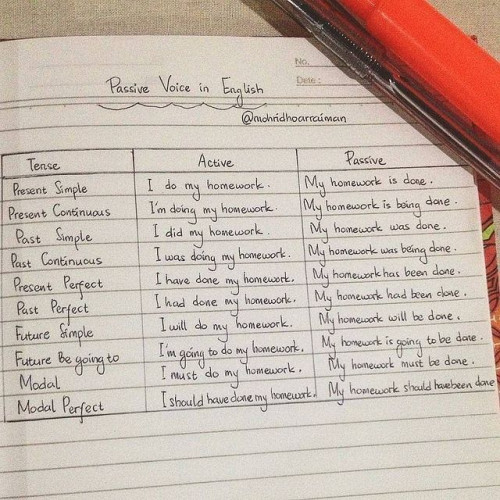 No.
Date :
Passive Voice in English
@mohridhoarraiman
Tense Active Passive
Present Simple I do my homework. My homework is done.
Present Continuous I'm doing my homework. My homework is being done.
Past Simple I did my homework. My homework was done.
Past Continuous I was doing my homework. My homework was being done.
Present Perfect I have done my homework. My homework has been done.
Past Perfect I had done my homework. My homework had been done.
Future Simple I will do my homework. My homework will be done.
Future Be going to I'm going to do my homework. My homework is going to be done.
Modal I must do my homework. My homework must be done.
Modal Perfect I should have done my homework. My homework should have been done